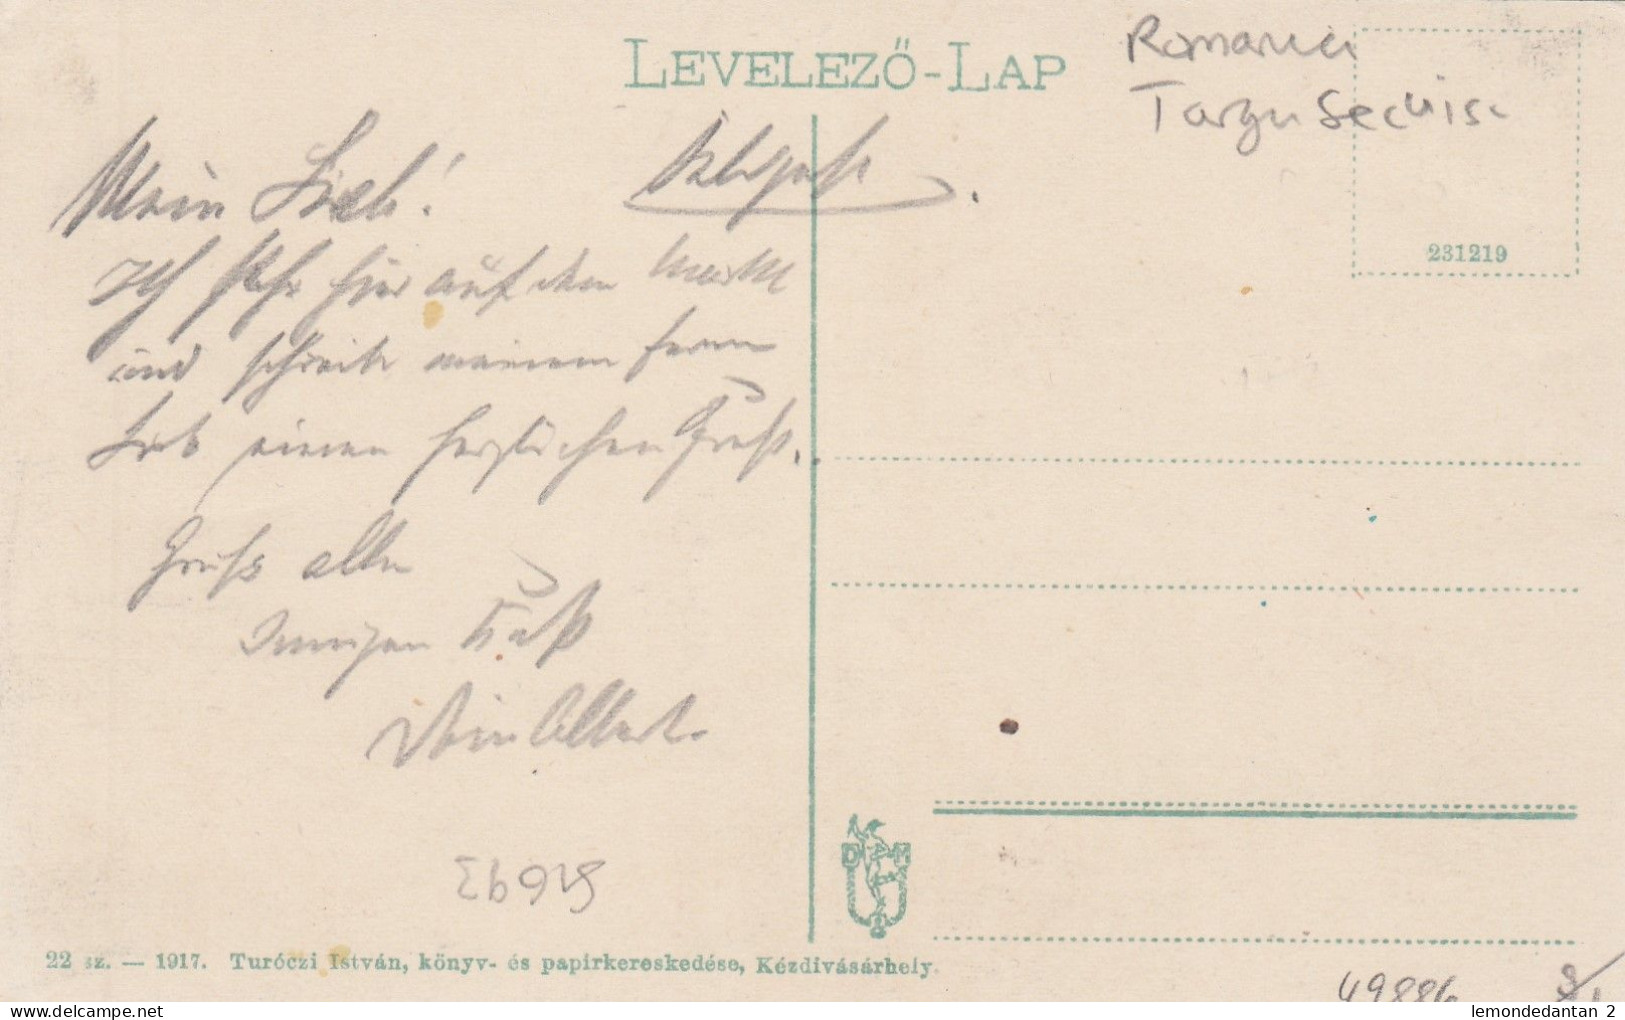 LEVELEZŐ-LAP
Romania
Targu Secuisc
231219
Mein Lieb!
Ich stehe hier auf dem Markt
und schreibe meinem fernen
Lieb einen herzlichen Gruß.
Gruß alle
Innigen Kuß
Dein Albert.
22 sz. — 1917. Turóczi István, könyv- és papirkereskedése, Kézdivásárhely.
D M
49886
lemondedantan 2